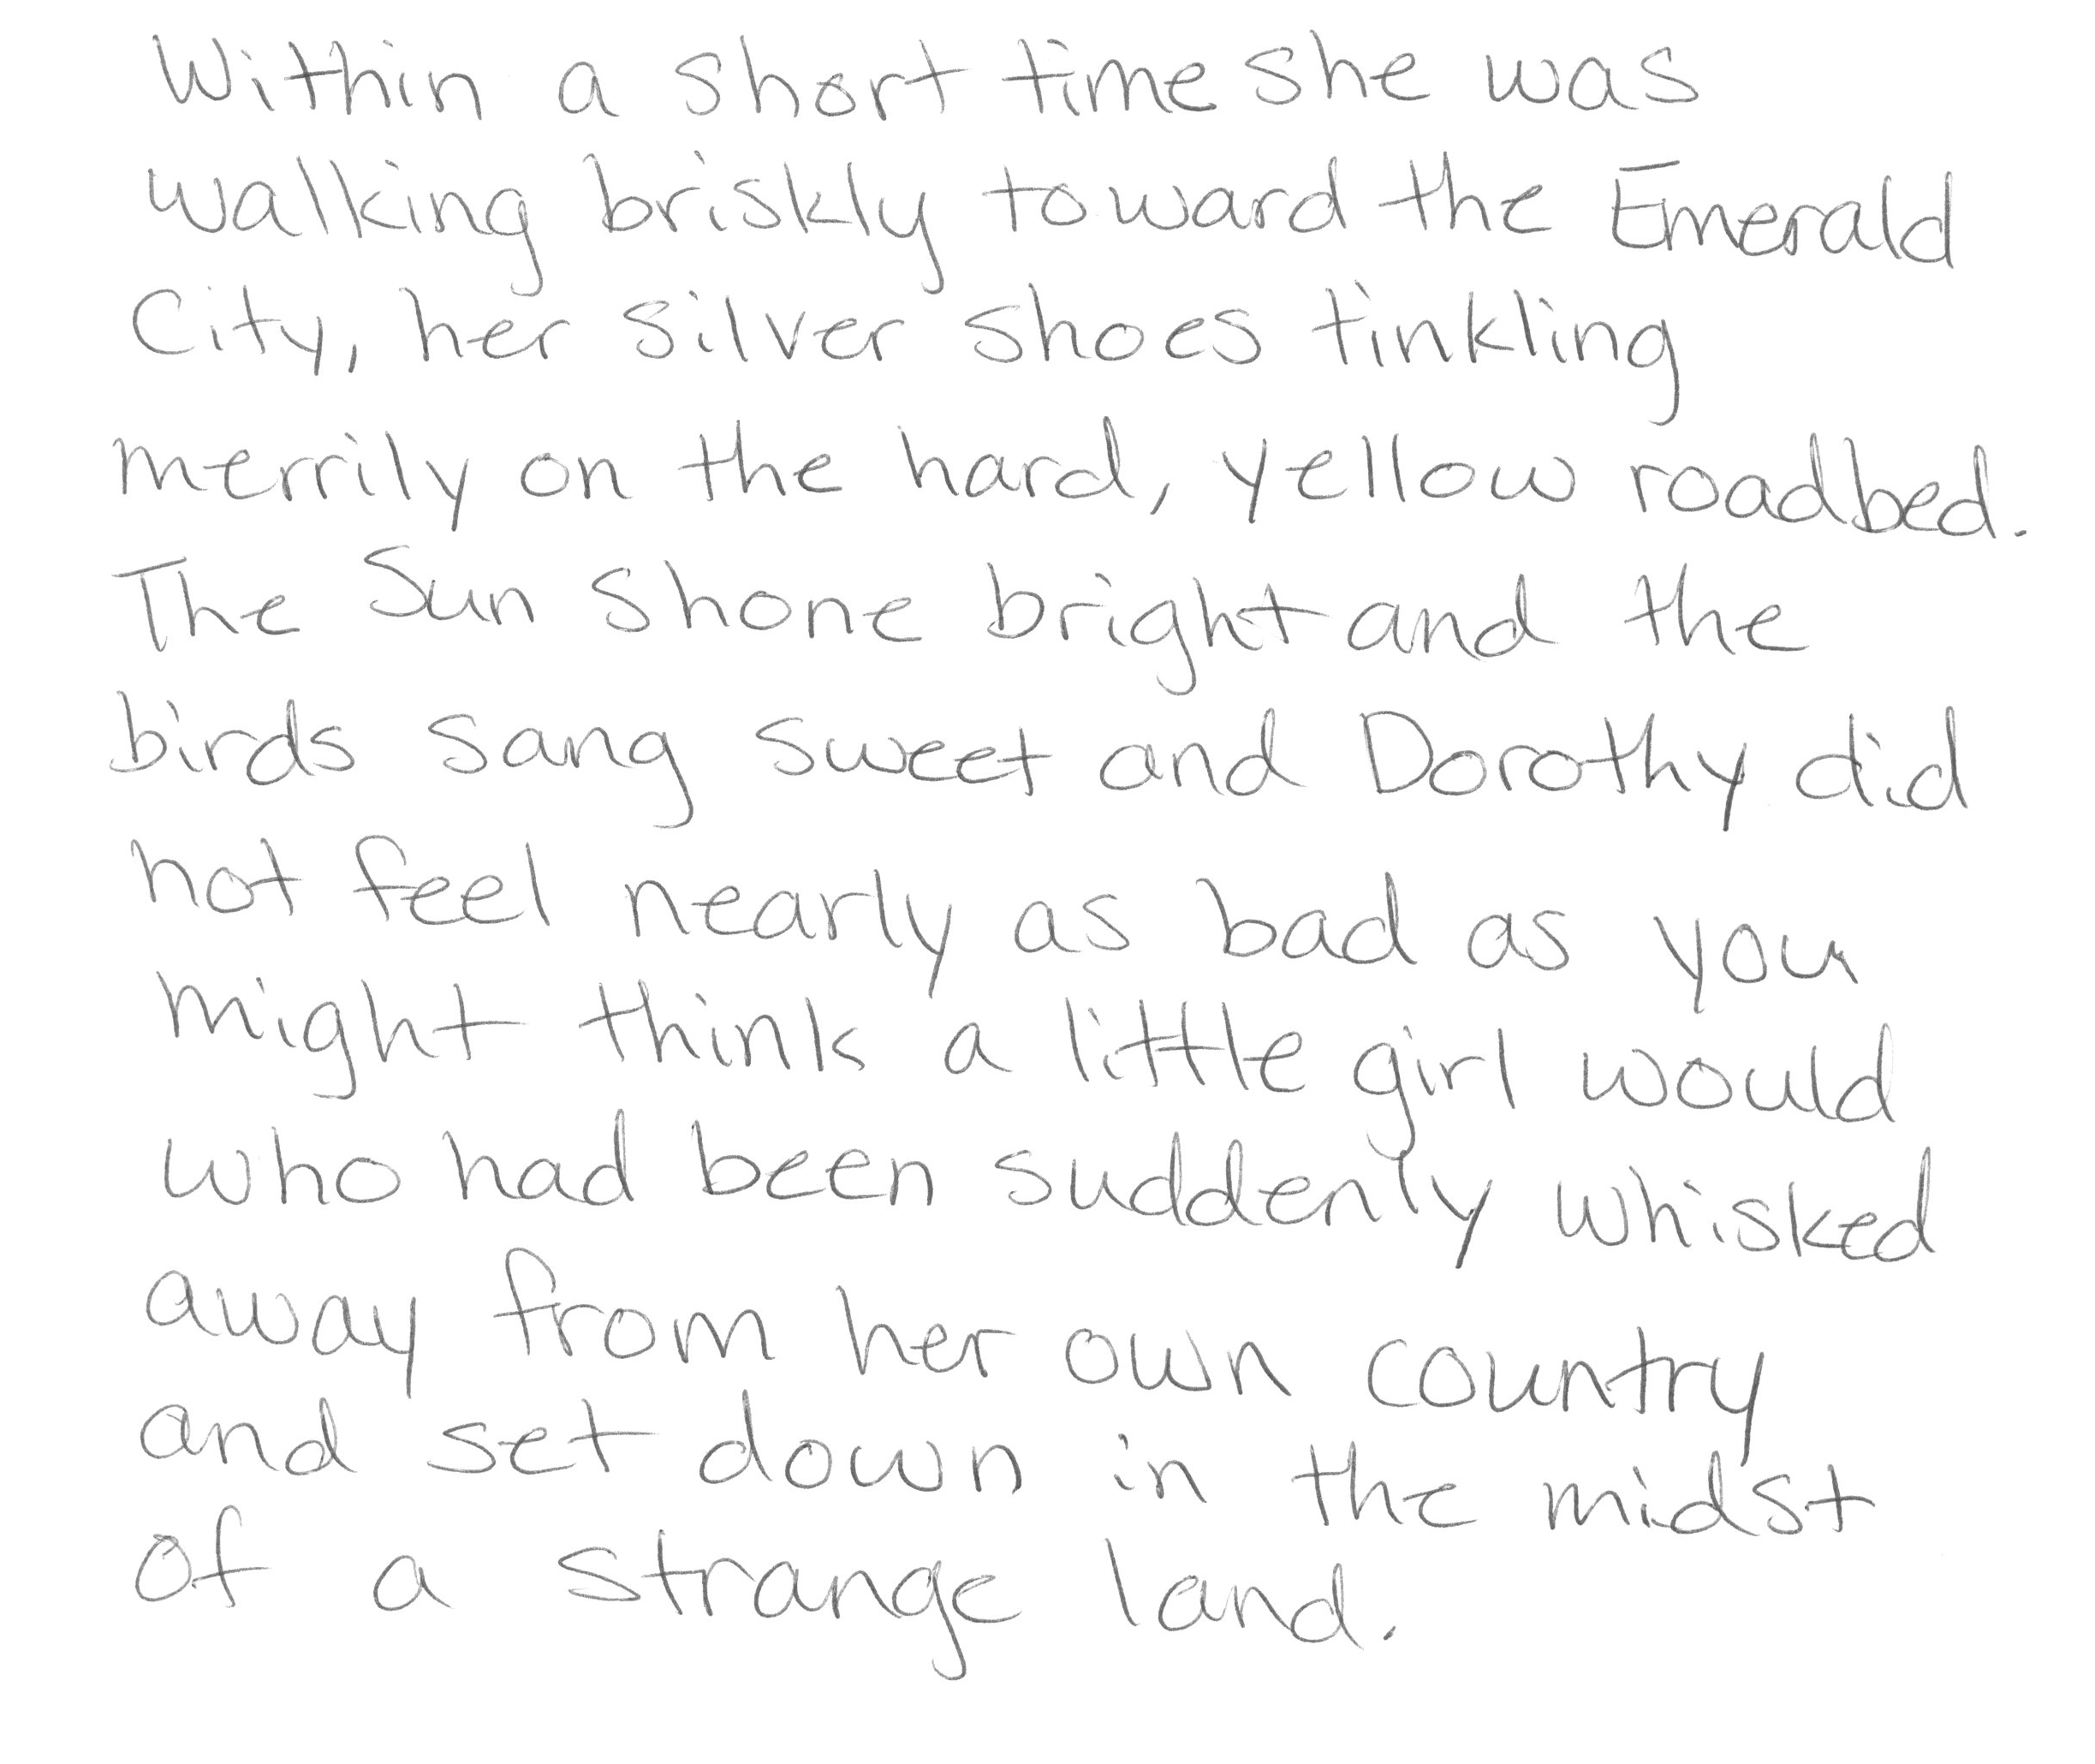 Within a short time she was
walking briskly toward the Emerald
City, her silver shoes tinkling
merrily on the hard, yellow roadbed.
The sun shone bright and the
birds sang sweet and Dorothy did
not feel nearly as bad as you
might think a little girl would
who had been suddenly whisked
away from her own country
and set down in the midst
of a strange land.